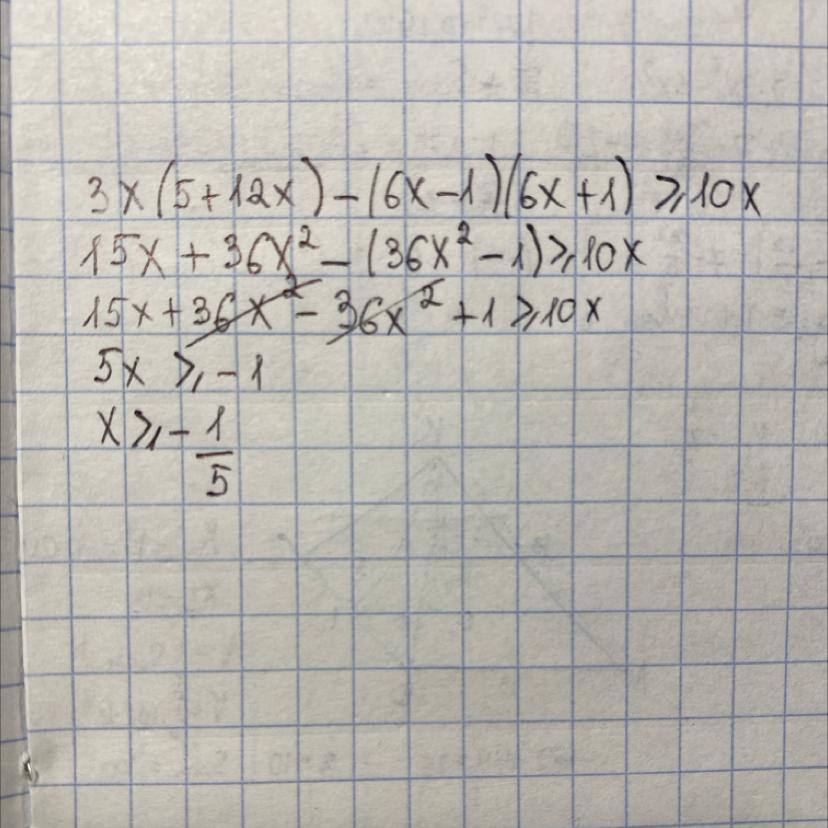 3x(5+12x)-(6x-1)(6x+1)⩾10x
15x+36x²-(36x²-1)⩾10x
15x+36x²-36x²+1⩾10x
5x⩾-1
x⩾-1/5